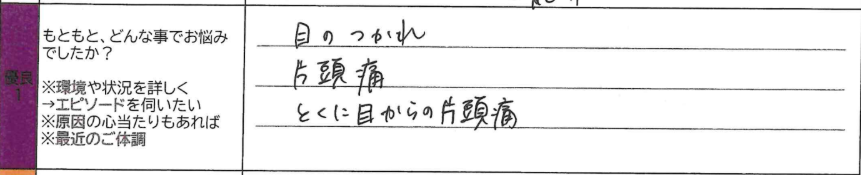 優良
1
もともと、どんな事でお悩み
でしたか?
※環境や状況を詳しく
→エピソードを伺いたい
※原因の心当たりもあれば
※最近のご体調
目のつかれ
片頭痛
とくに目からの片頭痛